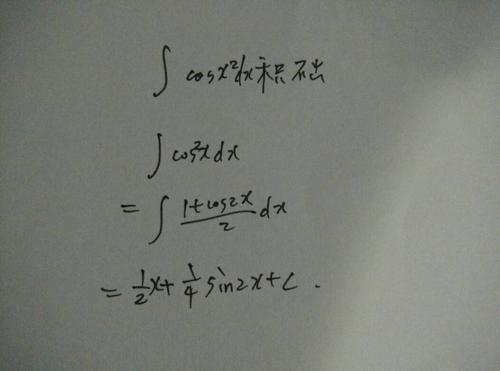 ∫ cosx²dx积不出
∫ cos²x dx
= ∫ (1+cos2x)/2 dx
= 1/2 x + 1/4 sin2x + C .